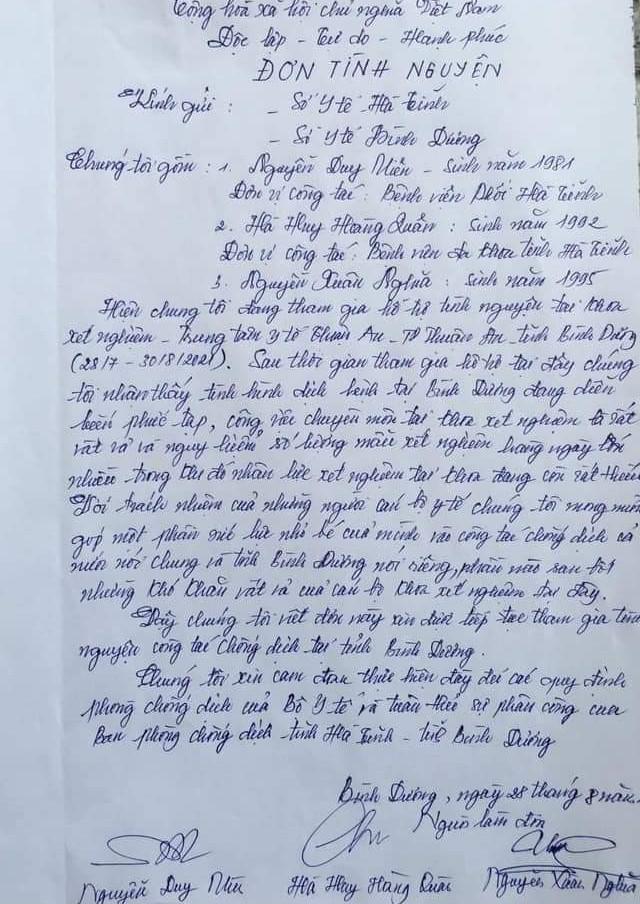 Cộng hoà xã hội chủ nghĩa Việt Nam
Độc lập - Tự do - Hạnh phúc
ĐƠN TÌNH NGUYỆN
Kính gửi : - Sở Y tế Hà Tĩnh
- Sở Y tế Bình Dương
Chúng tôi gồm : 1. Nguyễn Duy - Sinh năm 1981
Đơn vị công tác : Bệnh viện Phổi Hà Tĩnh
2. Hà Huy Hoàng Quân : Sinh năm 1992
Đơn vị công tác : Bệnh viện đa khoa tỉnh Hà Tĩnh
3. Nguyễn Xuân Nghĩa : Sinh năm 1995
Hiện chúng tôi đang tham gia hỗ trợ tình nguyện tại khoa
xét nghiệm - Trung tâm y tế Thuận An - TP Thuận An - tỉnh Bình Dương
(28/7 - 30/8/2021). Sau thời gian tham gia hỗ trợ tại đây chúng
tôi nhận thấy tình hình dịch bệnh tại Bình Dương đang diễn
biến phức tạp, công việc chuyên môn tại khoa xét nghiệm là rất
vất vả và nguy hiểm, số lượng mẫu xét nghiệm hàng ngày lớn
nhiều trong khi đó nhân lực xét nghiệm tại khoa đang còn rất thiếu
Với trách nhiệm của những người cán bộ y tế chúng tôi mong muốn
góp một phần sức lực nhỏ bé của mình vào công tác chống dịch cả
nước nói chung và tỉnh Bình Dương nói riêng, phần nào san bớt
những khó khăn vất vả của cán bộ khoa xét nghiệm tại đây.
Vậy chúng tôi viết đơn này xin được tiếp tục tham gia tình
nguyện công tác chống dịch tại tỉnh Bình Dương.
Chúng tôi xin cam đoan thực hiện đầy đủ các quy định
phòng chống dịch của Bộ Y tế và tuân thủ sự phân công của
Ban phòng chống dịch tỉnh Hà Tĩnh - tỉnh Bình Dương
Bình Dương, ngày 28 tháng 8 năm
Người làm đơn
Nguyễn Duy Hà Huy Hoàng Quân Nguyễn Xuân Nghĩa